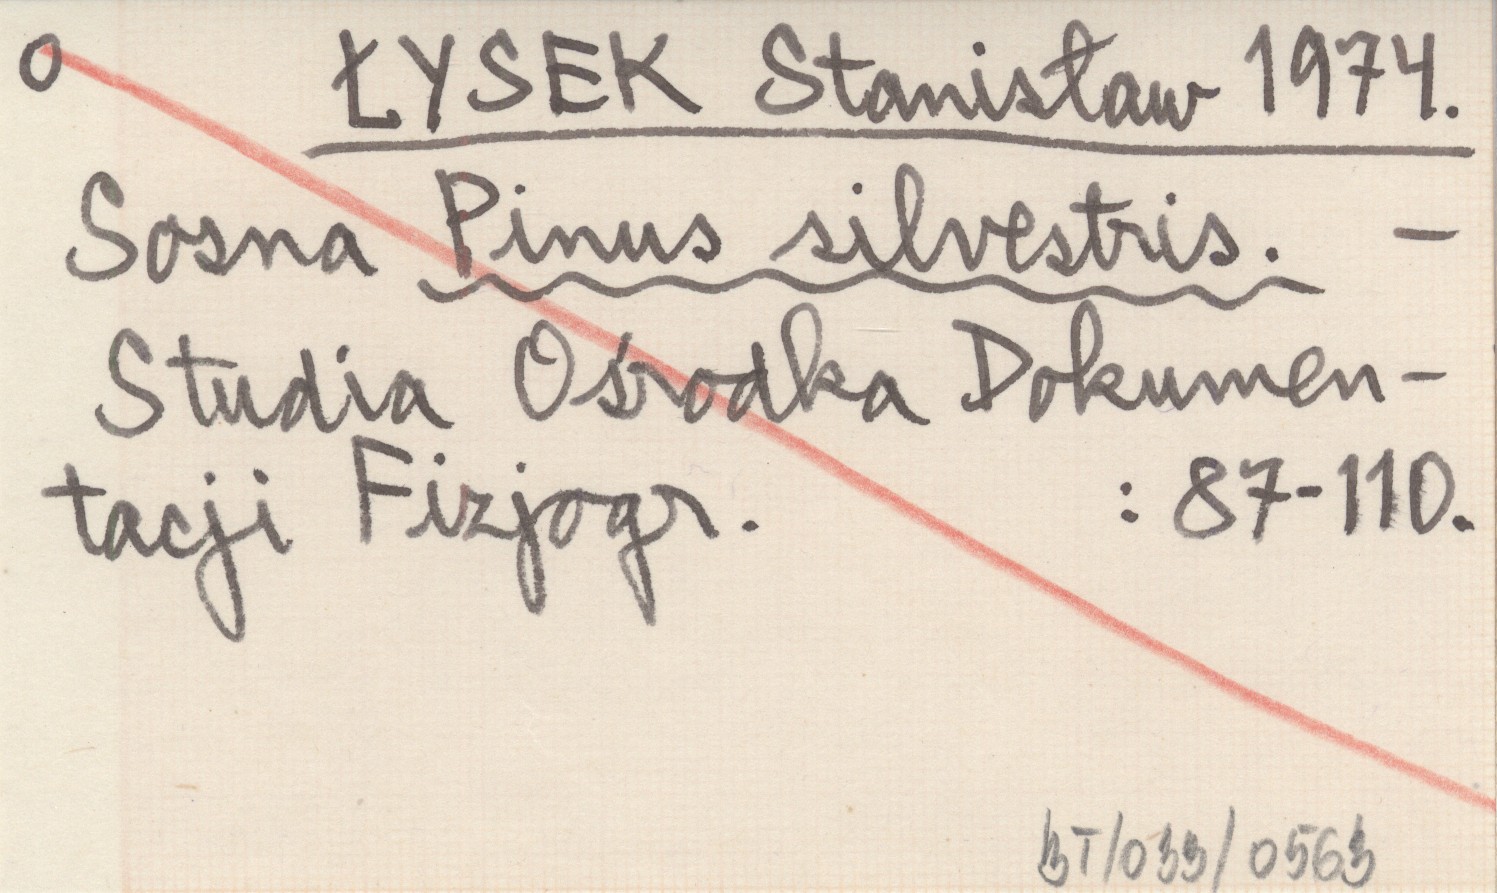 o ŁYSEK Stanisław 1974.
Sosna Pinus silvestris. –
Studia Ośrodka Dokumen-
tacji Fizjogr. : 87-110.
BT/033/0563